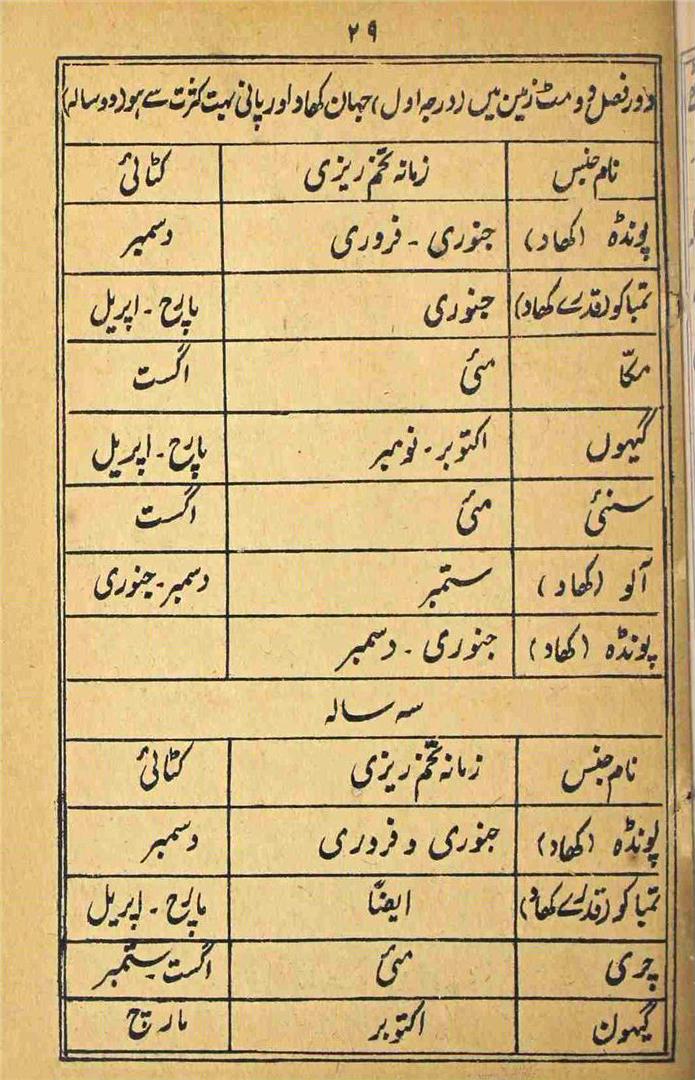 ۲۹
دور فصل دومٹ زمین میں (درجہ اول) جہان کھاد اور پانی بہت کثرت سے ہو (دو سالہ)
نام جنس زمانہ تخم ریزی کٹائی
پونڈہ (کھاد) جنوری - فروری دسمبر
تمباکو (قدرے کھاد) جنوری مارچ - اپریل
مکّا مئی اگست
گیہوں اکتوبر - نومبر مارچ - اپریل
سنئی مئی اگست
آلو (کھاد) ستمبر دسمبر - جنوری
پونڈہ (کھاد) جنوری - دسمبر
سہ سالہ
نام جنس زمانہ تخم ریزی کٹائی
پونڈہ (کھاد) جنوری و فروری دسمبر
تمباکو (قدرے کھاد) ایضاً مارچ - اپریل
چری مئی اگست - ستمبر
گیہون اکتوبر مارچ